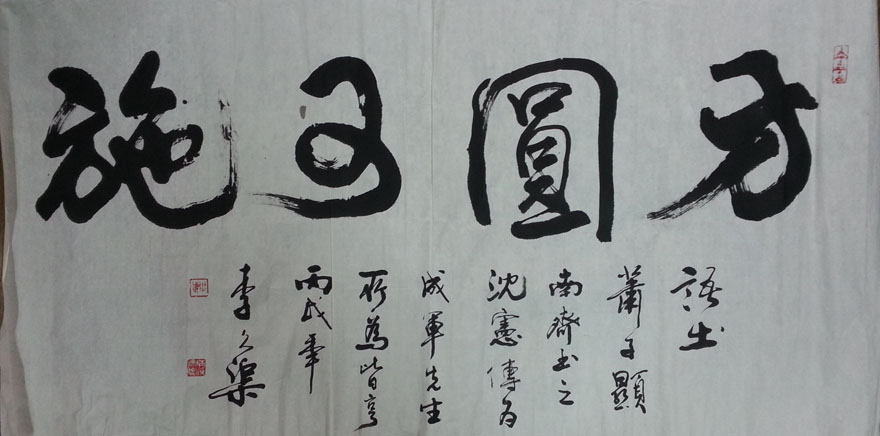 方圓可施
語出
蕭子顯
南齊書之
沈憲傳為
成軍先生
所為皆亨
丙戌年
李久渠